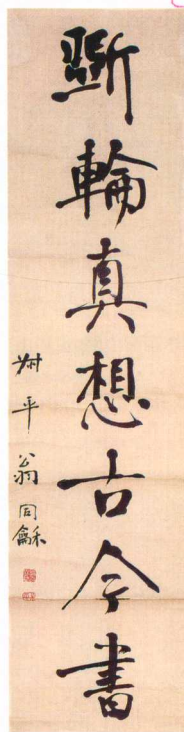 斲輪真想古今書
叔平翁同龢